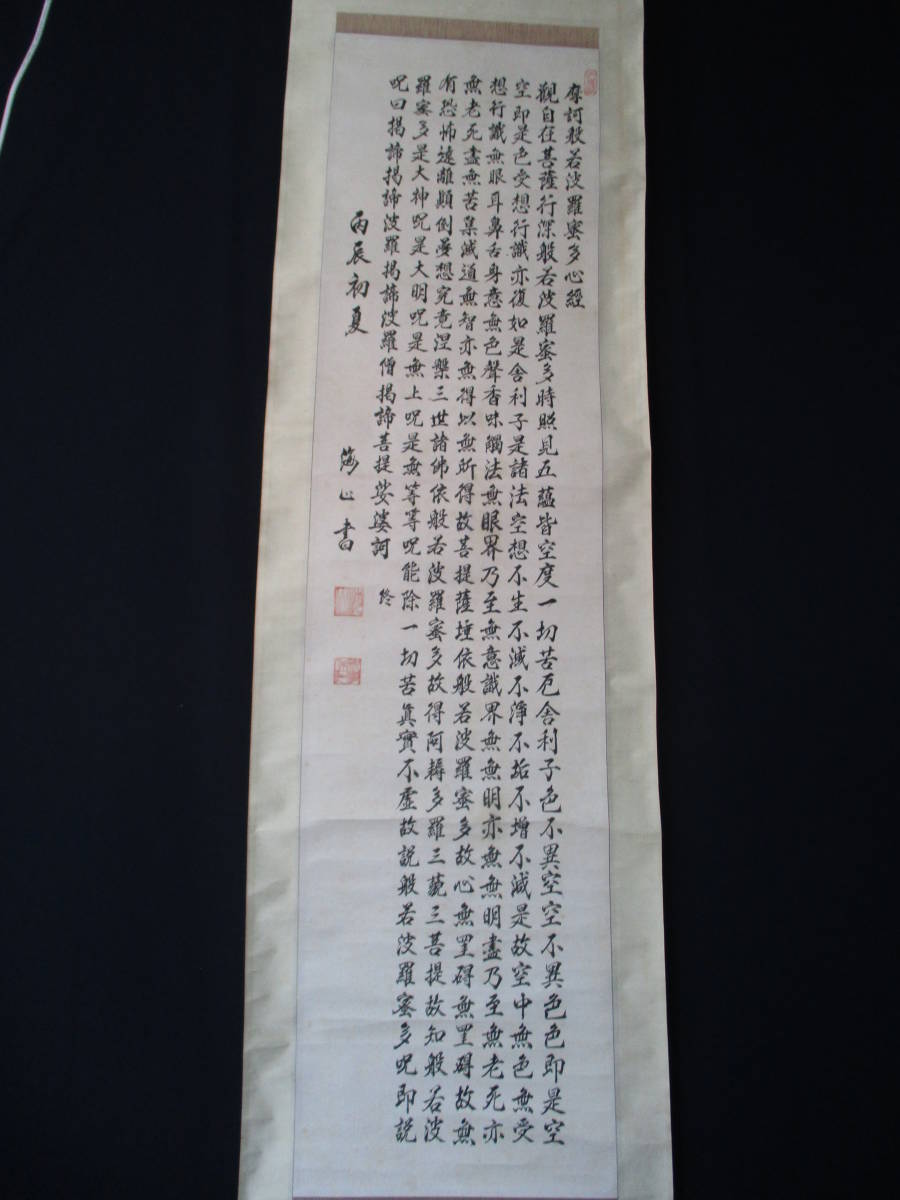 摩訶般若波羅蜜多心經
觀自在菩薩行深般若波羅蜜多時照見五蘊皆空度一切苦厄舍利子色不異空空不異色色即是空
空即是色受想行識亦復如是舍利子是諸法空想不生不滅不淨不垢不增不減是故空中無色無受
想行識無眼耳鼻舌身意無色聲香味觸法無眼界乃至無意識界無無明亦無無明盡乃至無老死亦
無老死盡無苦集滅道無智亦無得以無所得故菩提薩埵依般若波羅蜜多故心無罣碍無罣碍故無
有恐怖遠離顛倒夢想究竟涅槃三世諸佛依般若波羅蜜多故得阿耨多羅三藐三菩提故知般若波
羅蜜多是大神呪是大明呪是無上呪是無等等呪能除一切苦眞實不虛故說般若波羅蜜多呪即説
呪曰揭諦揭諦波羅揭諦波羅僧揭諦菩提娑婆訶 終
丙辰初夏
山書